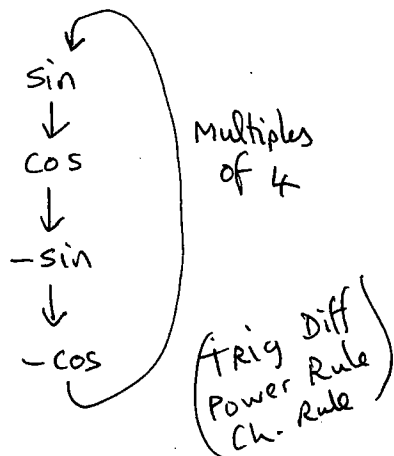 sin
↓
cos
↓
-sin
↓
-cos
Multiples
of 4
(TRig Diff
Power Rule
Ch. Rule)